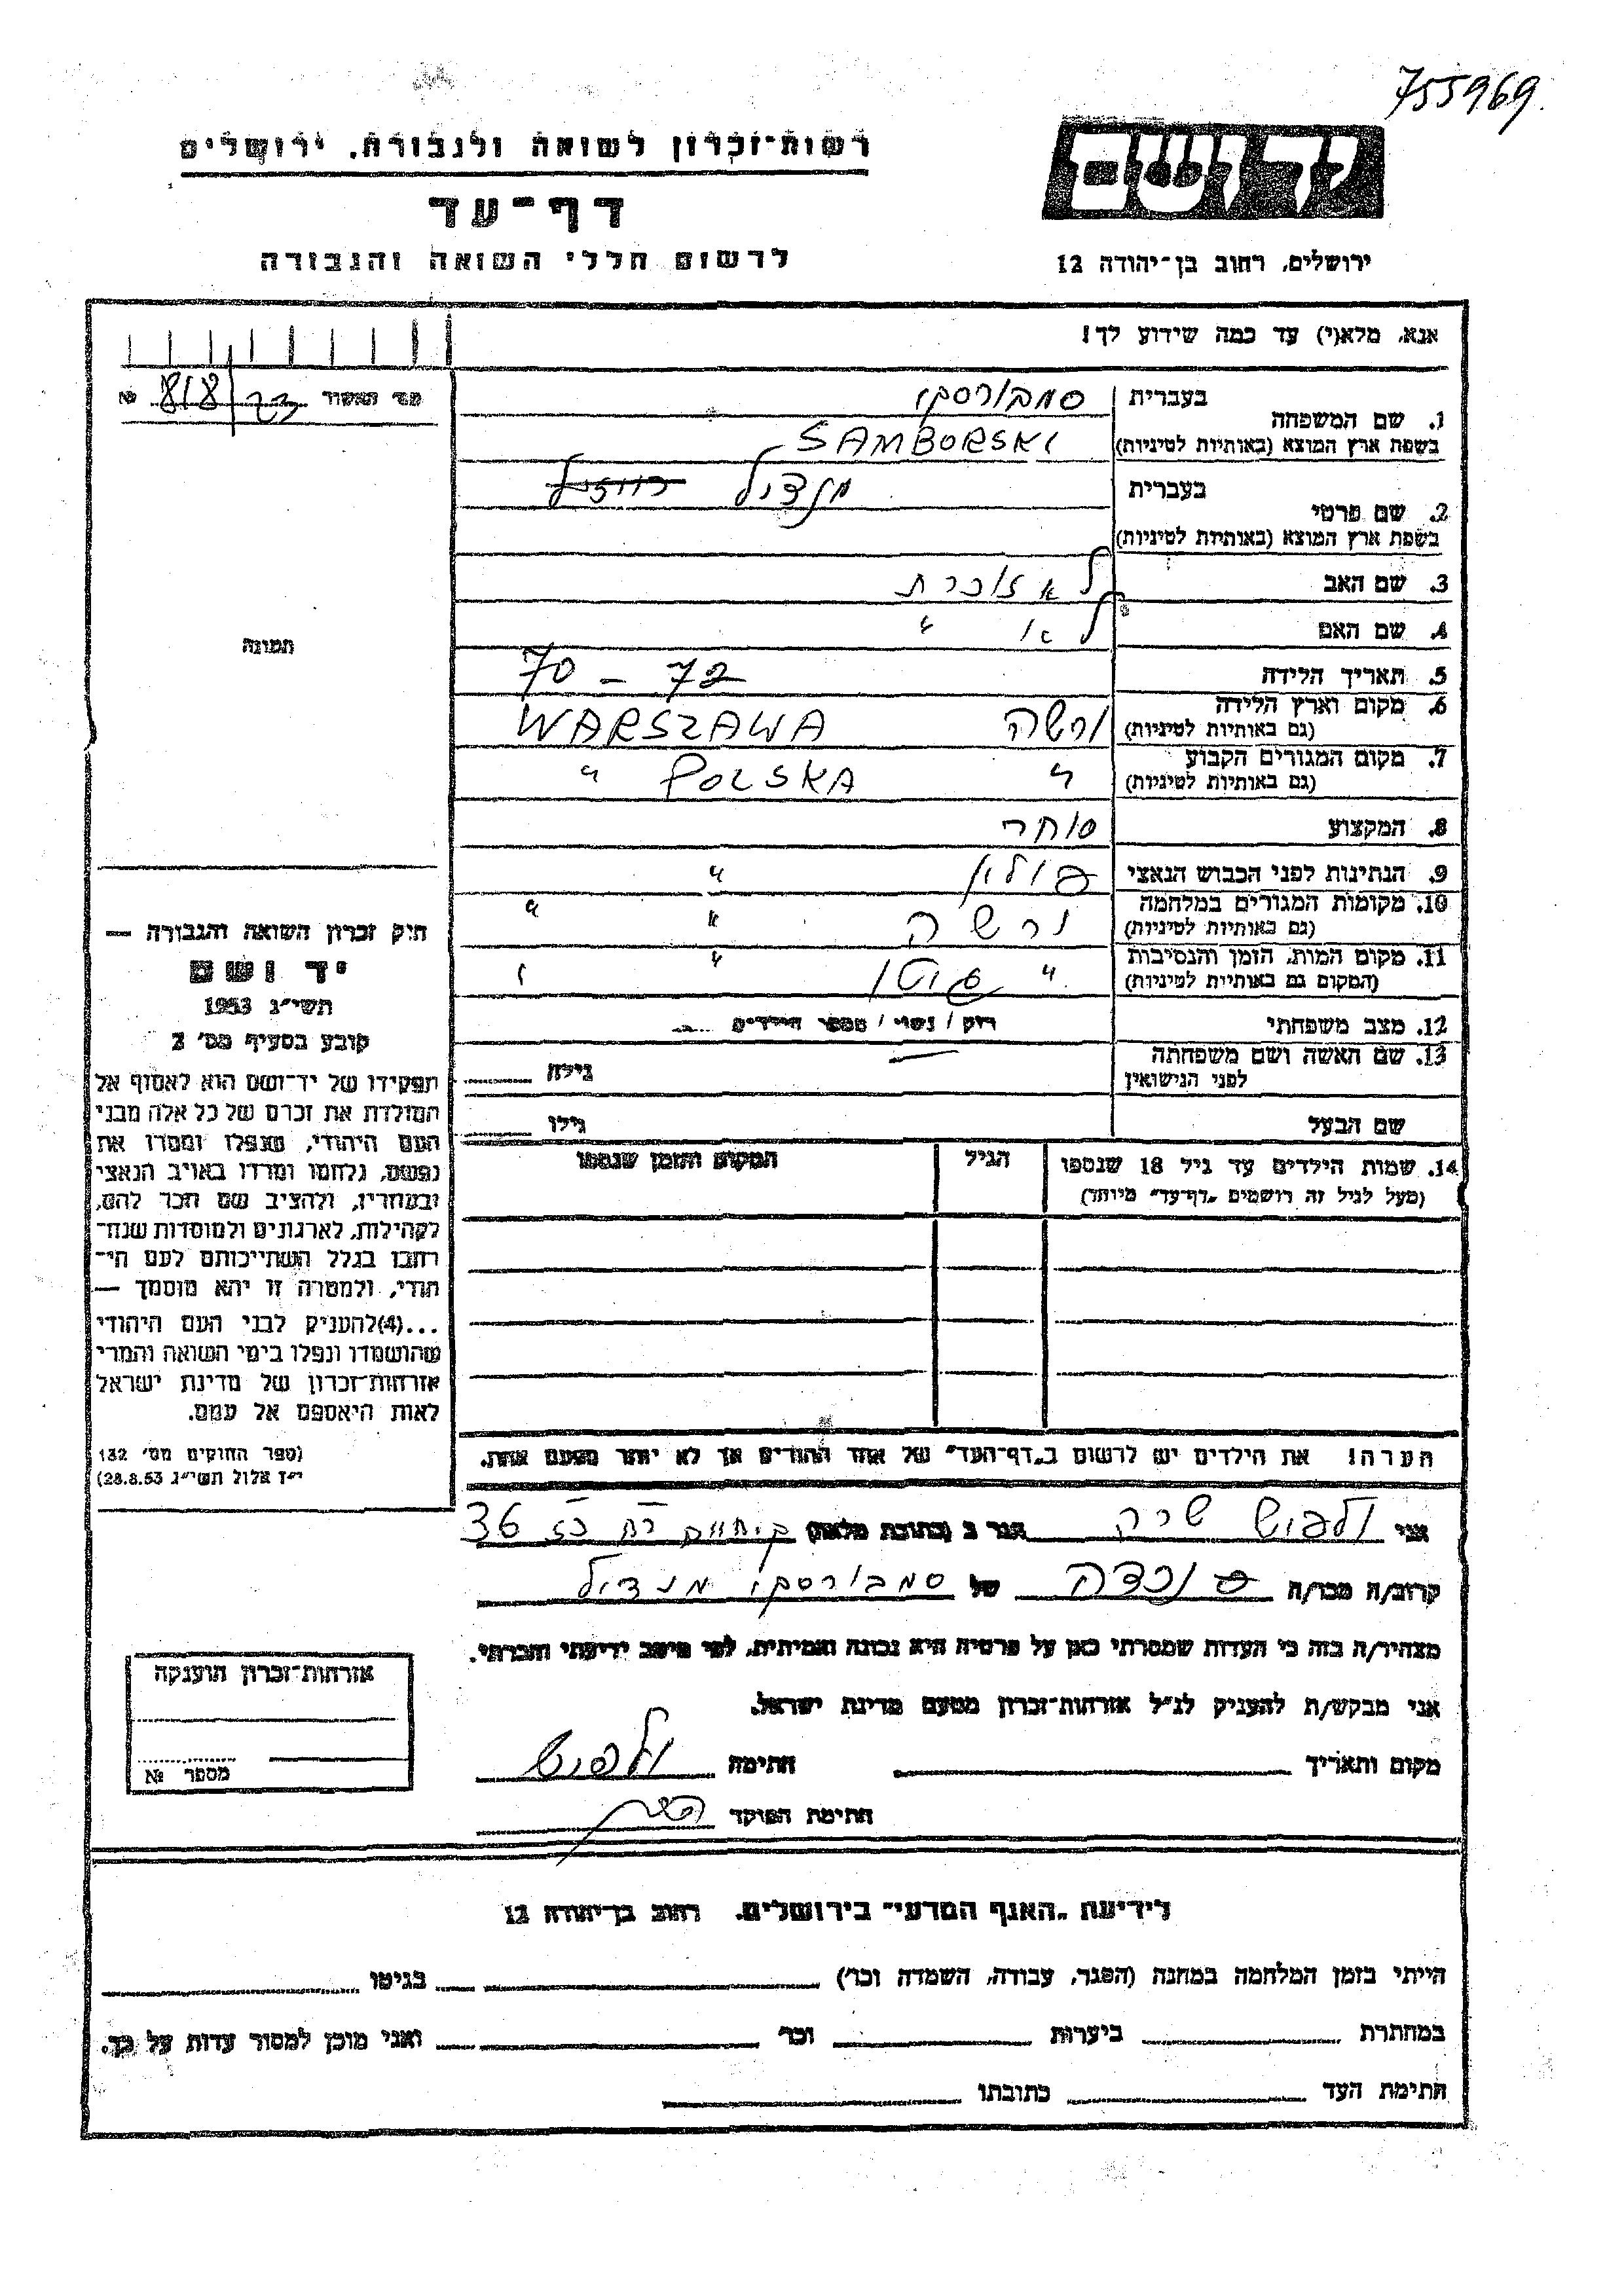 755969
רשות־זכרון לשואה ולגבורה, ירושלים
דף־עד
לרשום חללי השואה והגבורה
יד ושם
ירושלים, רחוב בן־יהודה 12
אנא, מלא(י) עד כמה שידוע לך!
1. שם המשפחה
בעברית סמבורסקי
בשפת ארץ המוצא (באותיות לטיניות) SAMBORSKI
2. שם פרטי
בעברית מנדיל
בשפת ארץ המוצא (באותיות לטיניות)
3. שם האב לא זוכרת
4. שם האם לא "
5. תאריך הלידה 70 - 72
6. מקום וארץ הלידה ורשה WARSZAWA
(גם באותיות לטיניות)
7. מקום המגורים הקבוע " POLSKA "
(גם באותיות לטיניות)
8. המקצוע סוחר
9. הנתינות לפני הכבוש הנאצי פולין "
10. מקומות המגורים במלחמה ורשה " "
(גם באותיות לטיניות)
11. מקום המות, הזמן והנסיבות " "
(המקום גם באותיות לטיניות)
12. מצב משפחתי רווק / נשוי / מספר הילדים
13. שם האשה ושם משפחתה גילה
לפני הנישואין
שם הבעל גילו
14. שמות הילדים עד גיל 18 שנספו הגיל המקום והזמן שנספו
(מעל לגיל זה רושמים „דף־עד" מיוחד)
הערה! את הילדים יש לרשום ב„דף־העד" של אחד ההורים אך לא יותר מפעם אחת.
מס' האשור 23/818 №
תמונה
חוק זכרון השואה והגבורה —
יד ושם
תשי"ג 1953
קובע בסעיף מס' 2
תפקידו של יד־ושם הוא לאסוף אל
המולדת את זכרם של כל אלה מבני
העם היהודי, שנפלו ומסרו את
נפשם, נלחמו ומרדו באויב הנאצי
ובעוזריו, ולהציב שם וזכר להם,
לקהילות, לארגונים ולמוסדות שנח־
רבו בגלל השתייכותם לעם הי־
הודי, ולמטרה זו יהא מוסמך —
...(4)להעניק לבני העם היהודי
שהושמדו ונפלו בימי השואה והמרי
אזרחות־זכרון של מדינת ישראל
לאות היאספם אל עמם.
(ספר החוקים מס' 132
י"ז אלול תשי"ג 28.8.53)
אני ולפיש שרה הגר ב (כתובת מלאה) ק. חיים רח' 36
קרוב/ה מכר/ה נכדה של סמבורסקי מנדיל
מצהיר/ה בזה כי העדות שמסרתי כאן על פרטיה היא נכונה ואמיתית, לפי מיטב ידיעתי והכרתי.
אני מבקש/ת להעניק לנ"ל אזרחות־זכרון מטעם מדינת ישראל.
מקום ותאריך חתימה ולפיש
חתימת הפוקד
אזרחות־זכרון הוענקה
מספר №
לידיעת „האגף המדעי" בירושלים, רחוב בן־יהודה 12
הייתי בזמן המלחמה במחנה (הסגר, עבודה, השמדה וכו') בגיטו
במחתרת ביערות וכו' ואני מוכן למסור עדות על כך.
חתימת העד כתובתו